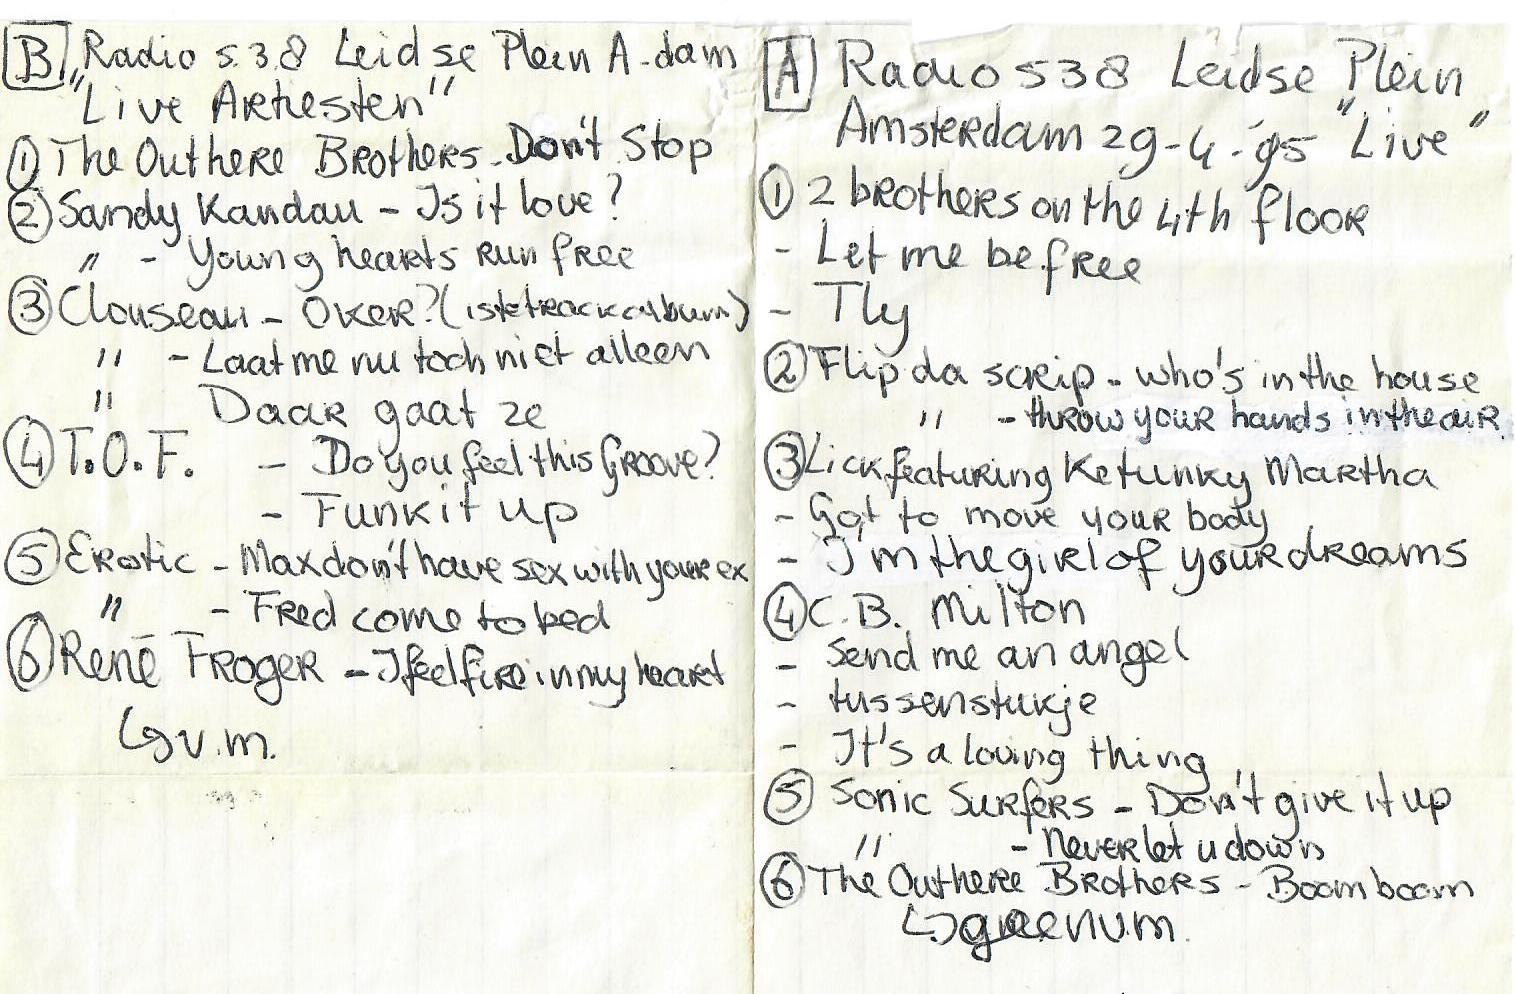 B Radio 538 Leidse Plein A-dam
"Live Artiesten"
① The Outhere Brothers - Don't Stop
② Sandy Kandau - Is it love?
" - Young hearts run free
③ Clouseau - Over? (1ste track album)
" - Laat me nu toch niet alleen
" Daar gaat ze
④ T.O.F. - Do you feel this Groove?
- Funk it up
⑤ Erotic - Max don't have sex with your ex
" - Fred come to bed
⑥ René Froger - I feel fire in my heart
↳ v.m.
A Radio 538 Leidse Plein
Amsterdam 29-4-'95 "Live"
① 2 brothers on the 4th floor
- Let me be free
- Fly
② Flip da scrip - who's in the house
" - throw your hands in the air
③ Lick featuring Kefunky Martha
- Got to move your body
- I'm the girl of your dreams
④ C.B. Milton
- Send me an angel
- tussenstukje
- It's a loving thing
⑤ Sonic Surfers - Don't give it up
" - Never let u down
⑥ The Outhere Brothers - Boom boom
↳ v.m.